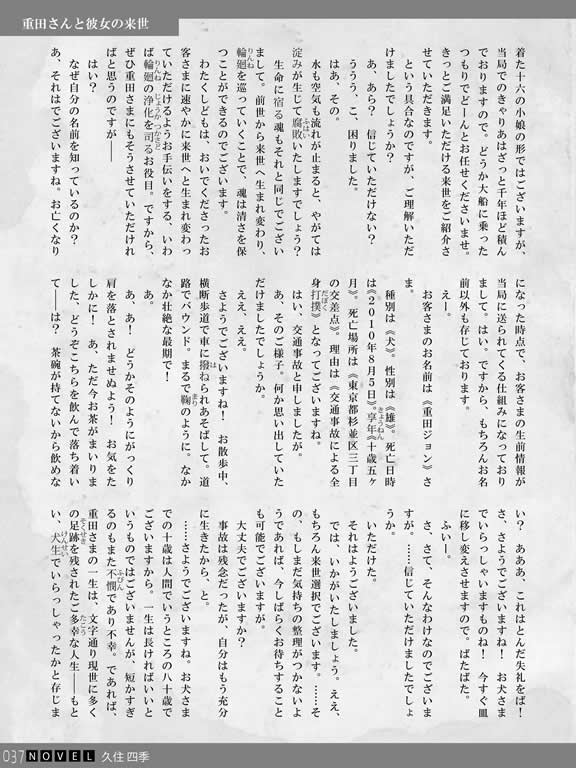 重田さんと彼女の来世
着た十六の小娘の形ではございますが、
当局でのきゃりあはざっと千年ほど積ん
でおりますので。どうか大船に乗った
つもりでどーんとお任せくださいませ。
きっとご満足いただける来世をご紹介さ
せていただきます。
という具合なのですが、ご理解いただ
けましたでしょうか?
あ、あら? 信じていただけない?
ううう、こ、困りました。
はあ、その。
水も空気も流れが止まると、やがては
淀みが生じて腐敗いたしますでしょう?
生命に宿る魂もそれと同じでござい
まして。前世から来世へ生まれ変わり、
輪廻を巡っていくことで、魂は清さを保
つことができるのでございます。
わたくしどもは、おいでくださったお
客さまに速やかに来世へと生まれ変わっ
ていただけるようお手伝いをする、いわ
ば輪廻の浄化を司るお役目。ですから、
ぜひ重田さまにもそうさせていただけれ
ばと思うのですが――
はい?
なぜ自分の名前を知っているのか?
あ、それはでございますね。お亡くなり
になった時点で、お客さまの生前情報が
当局に送られてくる仕組みになっており
まして。はい。ですから、もちろんお名
前以外も存じております。
えー。
お客さまのお名前は《重田ジョン》さ
ま。
種別は《犬》。性別は《雄》。死亡日時
は《2010年8月5日》。享年《十歳五ヶ
月》。死亡場所は《東京都杉並区三丁目
の交差点》。理由は《交通事故による全
身打撲》となってございますね。
はい、交通事故と申しましたが。
あ、そのご様子。何か思い出していた
だけましたでしょうか。
ええ、ええ。
さようでございますね! お散歩中、
横断歩道で車に撥ねられあそばして。道
路でバウンド。まるで鞠のように。なか
なか壮絶な最期で!
あ。
あ、あ! どうかそのようにがっくり
肩を落とされませぬよう! お気をた
しかに! あ、ただ今お茶がまいりま
した、どうぞこちらを飲んで落ち着い
て――は? 茶碗が持てないから飲めな
い? あああ、これはとんだ失礼をば!
さ、さようでございますね! お犬さま
でいらっしゃいますものね! 今すぐ皿
に移し変えさせますので。ぱたぱた。
ふいー。
さ、さて、そんなわけなのでございま
すが。……信じていただけましたでしょ
うか。
いただけた。
それはようございました。
では、いかがいたしましょう。ええ、
もちろん来世選択でございます。……そ
の、もしまだ気持ちの整理がつかないよ
うであれば、今しばらくお待ちすること
も可能でございますが。
大丈夫でございますか?
事故は残念だったが、自分はもう充分
に生きたから、と。
……さようでございますね。お犬さま
での十歳は人間でいうところの八十歳で
ございますから。一生は長ければいいと
いうものではございませんが、短かすぎ
るのもまた不憫であり不幸。であれば、
重田さまの一生は、文字通り現世に多く
の足跡を残されたご多幸な人生――もと
い、犬生でいらっしゃったかと存じま
037 NOVEL 久住 四季